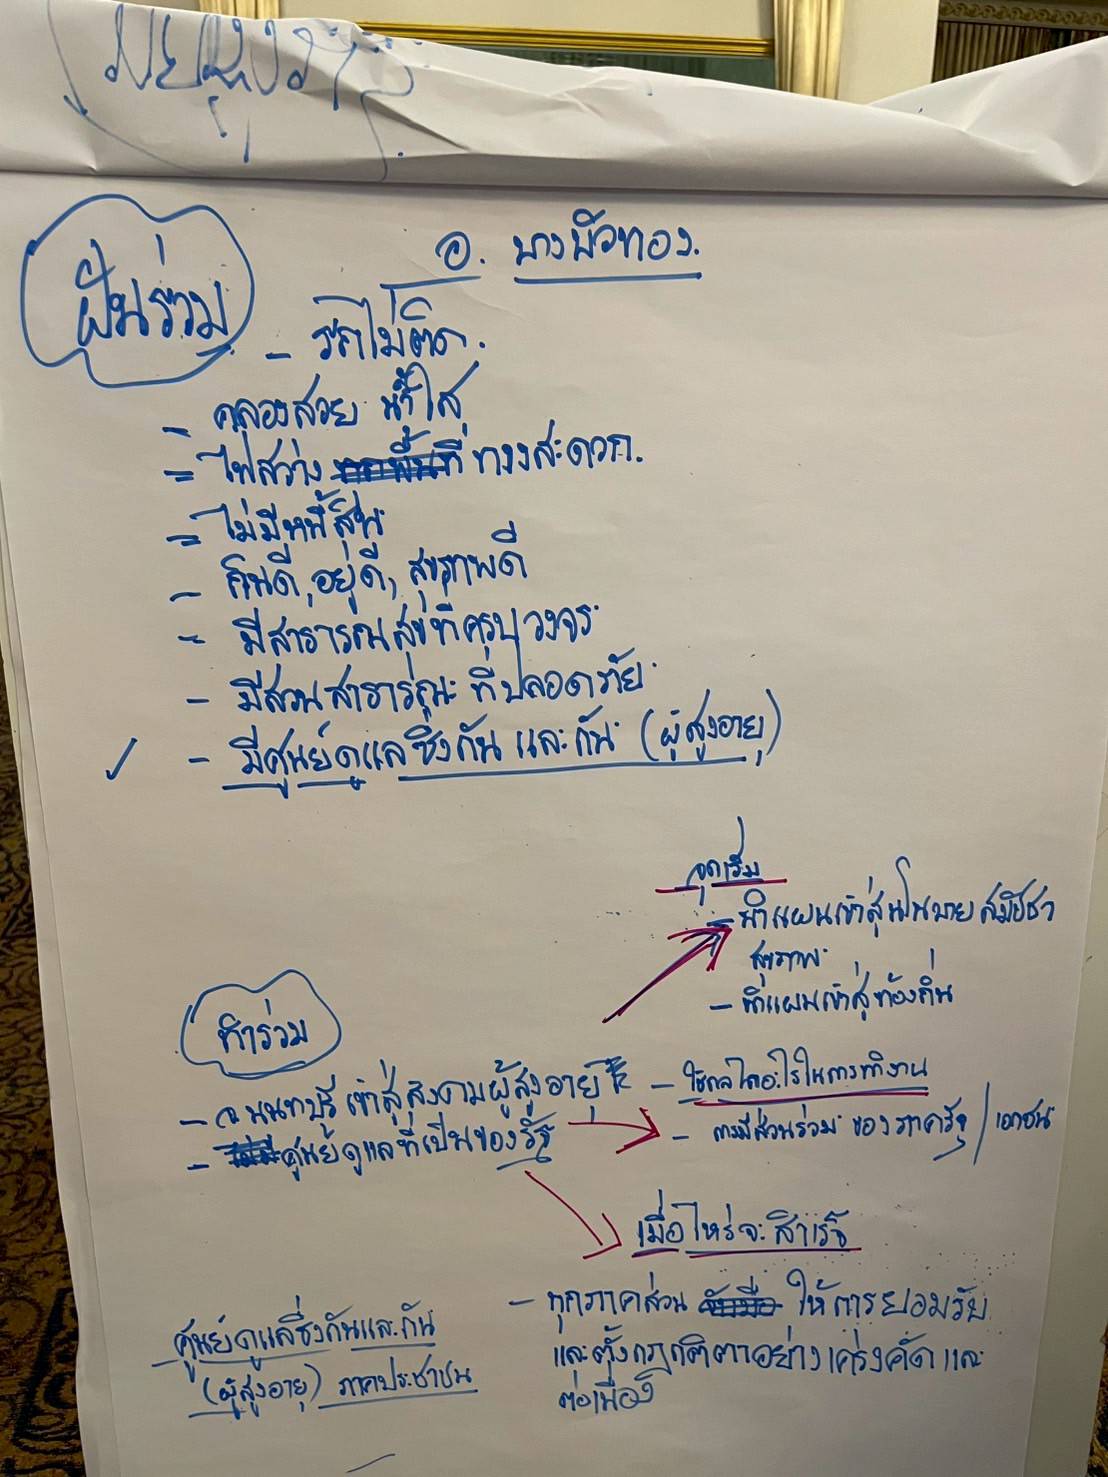 อ. บางบัวทอง.
ฝันร่วม
- รถไม่ติด.
- คลองสวย น้ำใส
- ไฟสว่าง ทางสะดวก.
- ไม่มีหนี้สิน
- กินดี, อยู่ดี, สุขภาพดี
- มีสาธารณสุขที่ครบวงจร
- มีสวนสาธารณะ ที่ปลอดภัย
✓ - มีศูนย์ดูแลซึ่งกัน และกัน (ผู้สูงอายุ)
จุดเริ่ม
- นำแผนเข้าสู่นโยบาย สมัชชา
สุขภาพ
- นำแผนเข้าสู่ท้องถิ่น
ทำร่วม
- จ.นนทบุรี เข้าสู่สูงคามผู้สูงอายุ
- ศูนย์ดูแลที่เป็นของรัฐ
- ใช้กลไกอะไรในการทำงาน
- การมีส่วนร่วม ของภาครัฐ / เอกชน
เมื่อไหร่จะสำเร็จ
- ทุกภาคส่วน ให้การยอมรับ
และตั้งกฎกติกาอย่างเคร่งคัด และ
ต่อเนื่อง
ศูนย์ดูแลซึ่งกันและกัน
(ผู้สูงอายุ) ภาคประชาชน